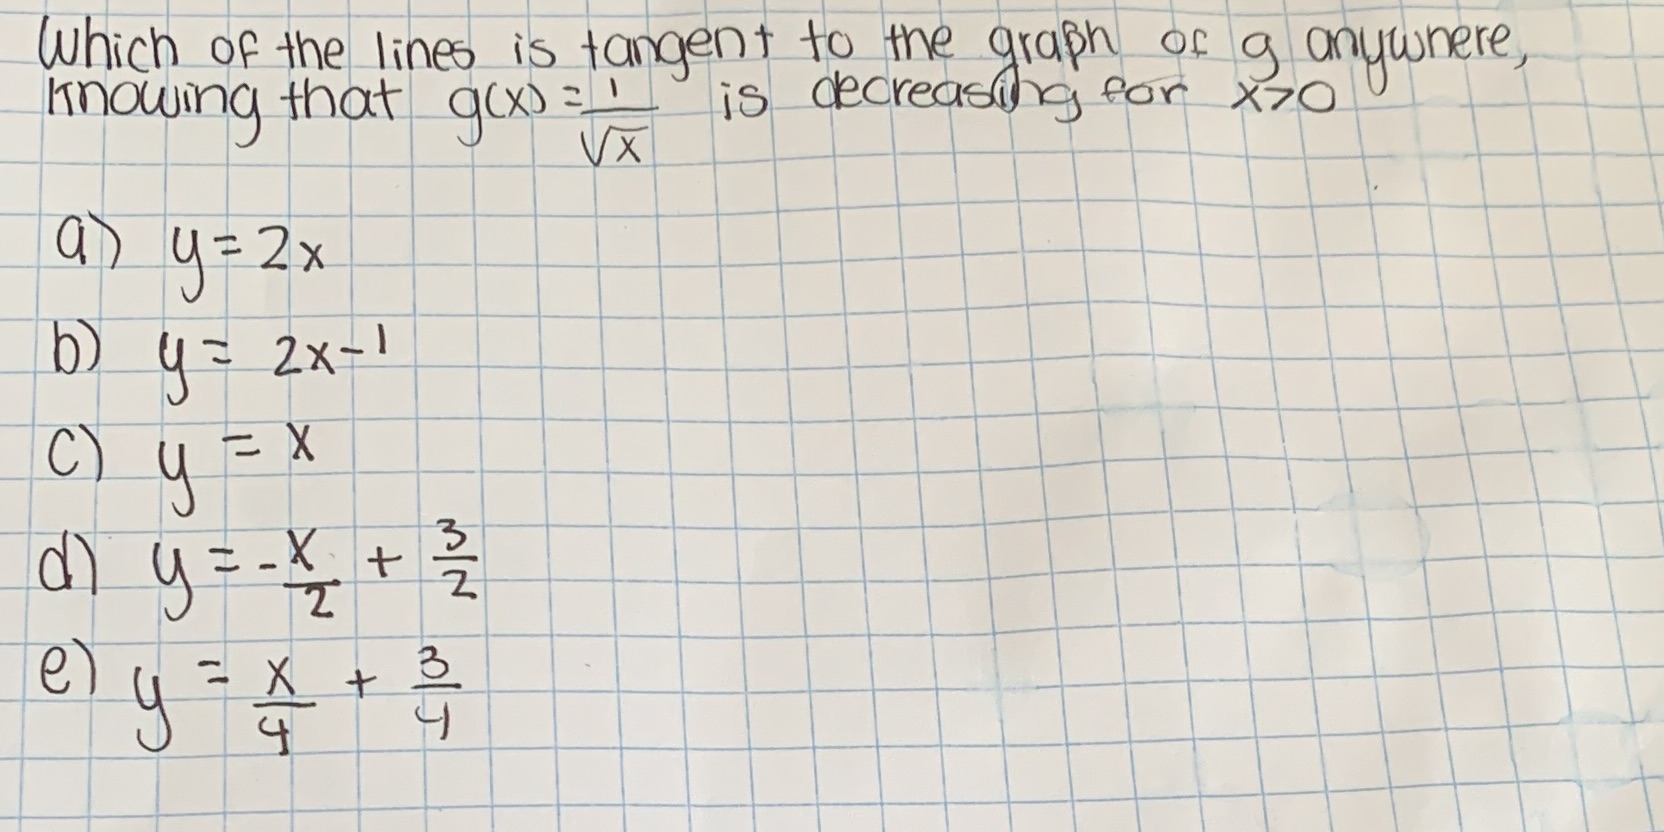 Which of the lines is tangent to the graph of g anywhere,
knowing that g(x) = 1/√x is decreasing for x>0
a) y = 2x
b) y = 2x-1
c) y = x
d) y = -x/2 + 3/2
e) y = x/4 + 3/4